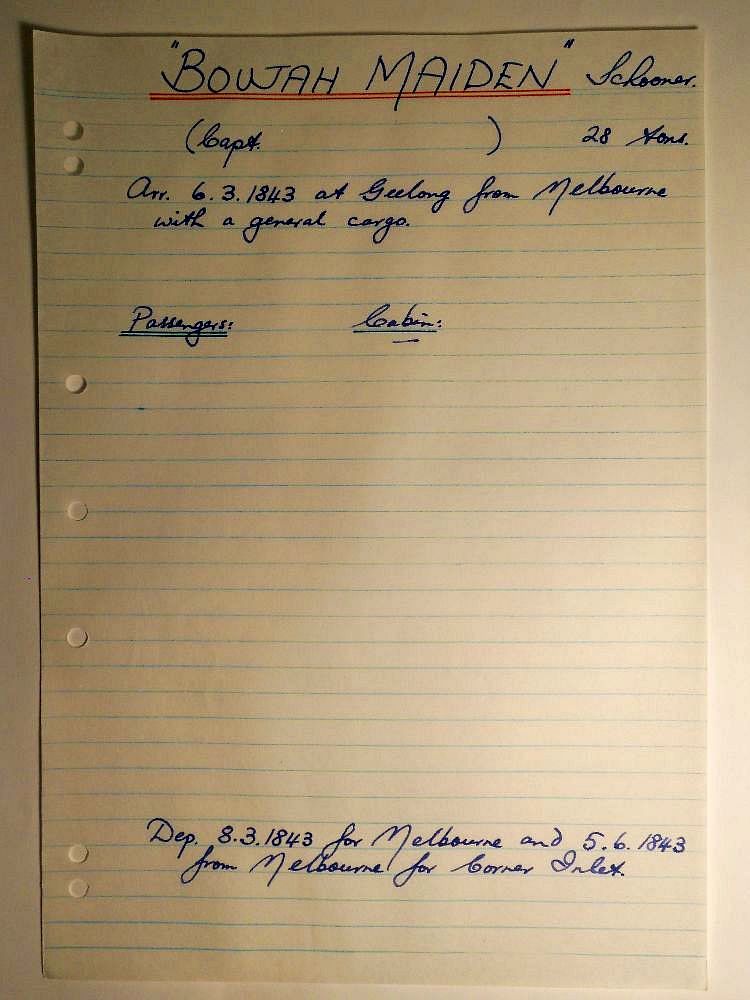 "BOWJAH MAIDEN" Schooner.
(Capt. ) 28 tons.
Arr. 6.3.1843 at Geelong from Melbourne
with a general cargo.
Passengers: Cabin:
Dep. 8.3.1843 for Melbourne and 5.6.1843
from Melbourne for Corner Inlet.